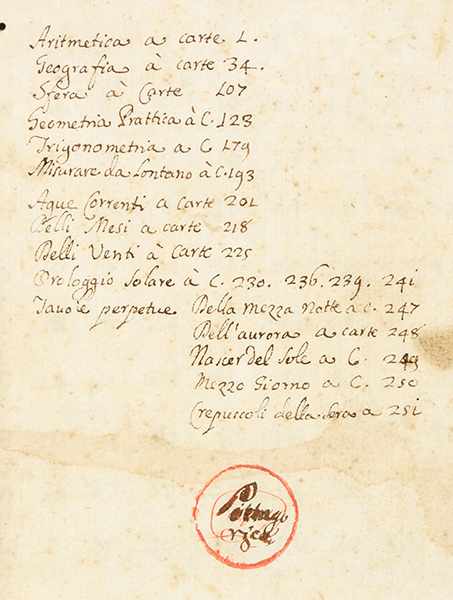 Aritmetica a carte 1.
Geografia à carte 34.
Sfera à Carte 107
Geometria Prattica à C. 123
Trigonometria a C 179
Misurare da Lontano à C. 193
Aque Correnti a carte 201
Delli Mesi a carte 218
Delli Venti à carte 225
Orologgio Solare à C. 230. 236. 239. 241
Tavole perpetue Della mezza Notte a c. 247
Dell'aurora a carte 248
Nascer del Sole a C. 249
Mezzo Giorno a C. 250
Crepuscoli della Sera a 251